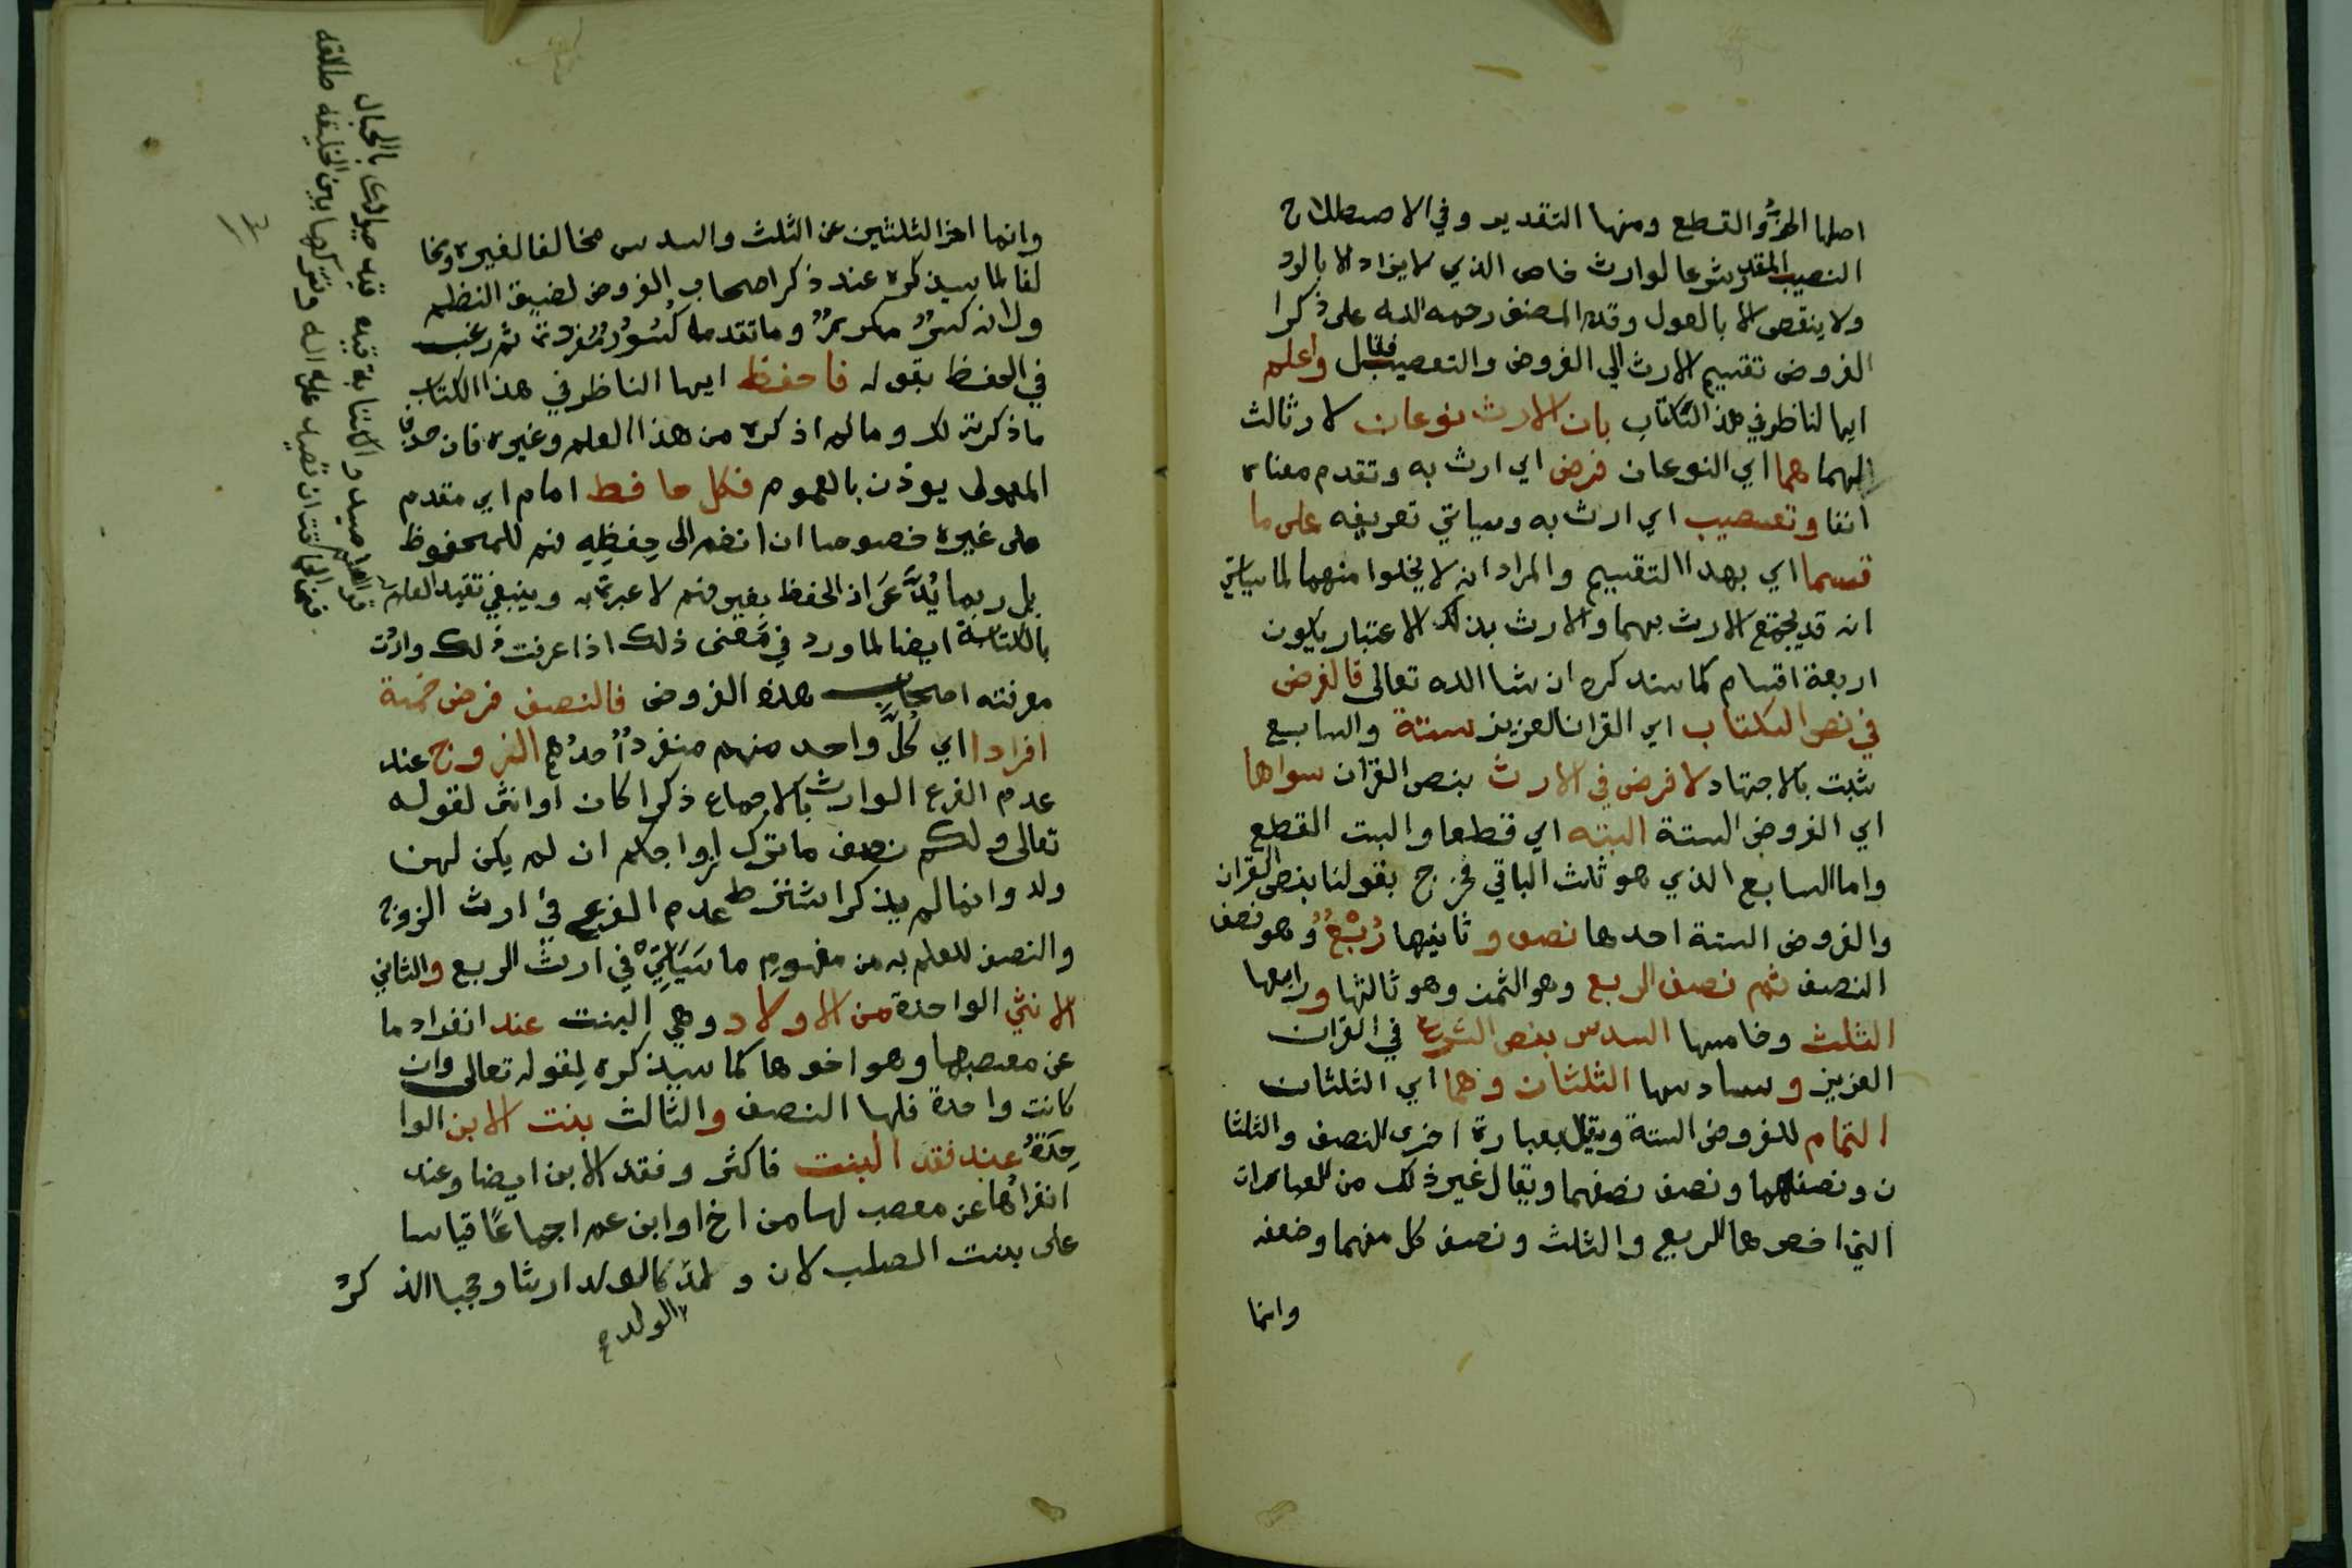 اصلها الحز والقطع ومنها التقدير وفي الاصطلاح
النصيب المقدر شرعا لوارث خاص الذي لا يزاد الا بالرد
ولا ينقص الا بالعول وقدم المصنف رحمه الله على ذكر ا
الفروض تقسيم الارث الى الفروض والتعصيب فقال واعلم
ايها الناظر في هذا الكتاب بان الارث نوعان لا ثالث
لهما هما اي النوعان فرض اي ارث به وتقدم معناه
انفا وتعصيب اي ارث به وسياتي تعريفه على ما
قسما اي بهذا التقسيم والمراد انه لا يخلوا منهما لما سياتي
انه قد يجتمع الارث بهما والارث بذلك الاعتبار يكون
اربعة اقسام كما سنذكره ان شا الله تعالى فالفرض
في نص الكتاب اي القران العزيز ستة والسابع
ثبت بالاجتهاد لا فرض في الارث بنص القران سواها
اي الفروض الستة البته اي قطعا والبت القطع
واما السابع الذي هو ثلث الباقي فخرج بقولنا بنص القران
والفروض الستة احدها نصف و ثانيها رُبْعٌ وهو نصف
النصف ثم نصف الربع وهو الثمن وهو ثالثها ورابعها
الثلث وخامسها السدس بنص الشرع في القران
العزيز وسادسها الثلثان وهما اي الثلثان
التمام للفروض الستة ويقال بعبارة اخرى النصف والثلثا
ن ونصفهما ونصف نصفهما ويقال غير ذلك من العبارات
التي اخصرها الربع والثلث ونصف كل منهما وضعفه
وانما
وانما اخر الثلثين عن الثلث والسدس مخالفا لغيره ومخا
لفا لما سيذكره عند ذكر اصحاب الفروض لضيق النظم
ولانه كسر مكرر وما تقدمه كسور مفردة ثم رغب
في الحفظ بقوله فاحفظ ايها الناظر في هذا الكتاب
ما ذكرته لك وما لم اذكره من هذا العلم وغيره فان حذف
المعمول يوذن بالعموم فكل حافظ امام اي مقدم
على غيره خصوصا ان انضم الى حِفظِهِ فهم للمحفوظ
بل ربما يُدَّعَى اذ الحفظ بغير فهم لا عبرة به وينبغي تقيد العلم
بالكتابة ايضا لما ورد في مَعنى ذلك اذا عرفت ذلك واردت
معرفته اصحاب هذه الفروض فالنصف فرض خمسة
افرادا اي كُلُّ واحد منهم منفرد اُحدُهم الزوج عند
عدم الفرع الوارث بالاجماع ذكرا كان او انثى لقوله
تعالى ولكم نصف ما ترك ازواجكم ان لم يكن لهن
ولد وانما لم يذكر اشترط عدم الفرع في ارث الزوج
والنصف للعلم به من مفهوم ما سَيَاتِي في ارث الربع والثاني
الانثى الواحدة من الاولاد وهي البنت عند انفرادها
عن معصبها وهو اخوها كما سيذكره لِقوله تعالى وان
كانت واحدة فلها النصف والثالث بنت الابن الوا
حِدَةُ عند فقد البنت فاكثر وفقد الابن ايضا وعند
انفرادُها عن معصب لها من اخ او ابن عم اجماعًا قياسا
على بنت الصلب لان ولد كالولد ارثا وحجبا الذكر
الولد
العلم صيد والكتابة قيده قيد صيودك بالحبال
فمن الحماقة ان تصيد غزالة وتتركها بين الخليقه طالقه